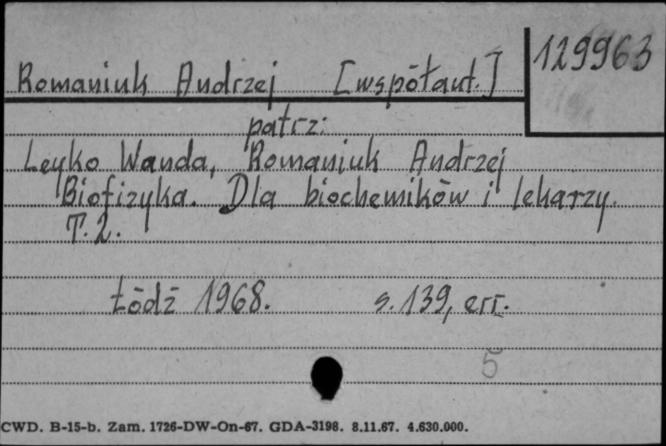 129963
Romaniuk Andrzej [współaut.]
patrz:
Leyko Wanda, Romaniuk Andrzej
Biofizyka. Dla biochemików i lekarzy.
T. 2.
Łódź 1968. s. 139, err.
5
CWD. B-15-b. Zam. 1726-DW-On-67. GDA-3198. 8.11.67. 4.630.000.